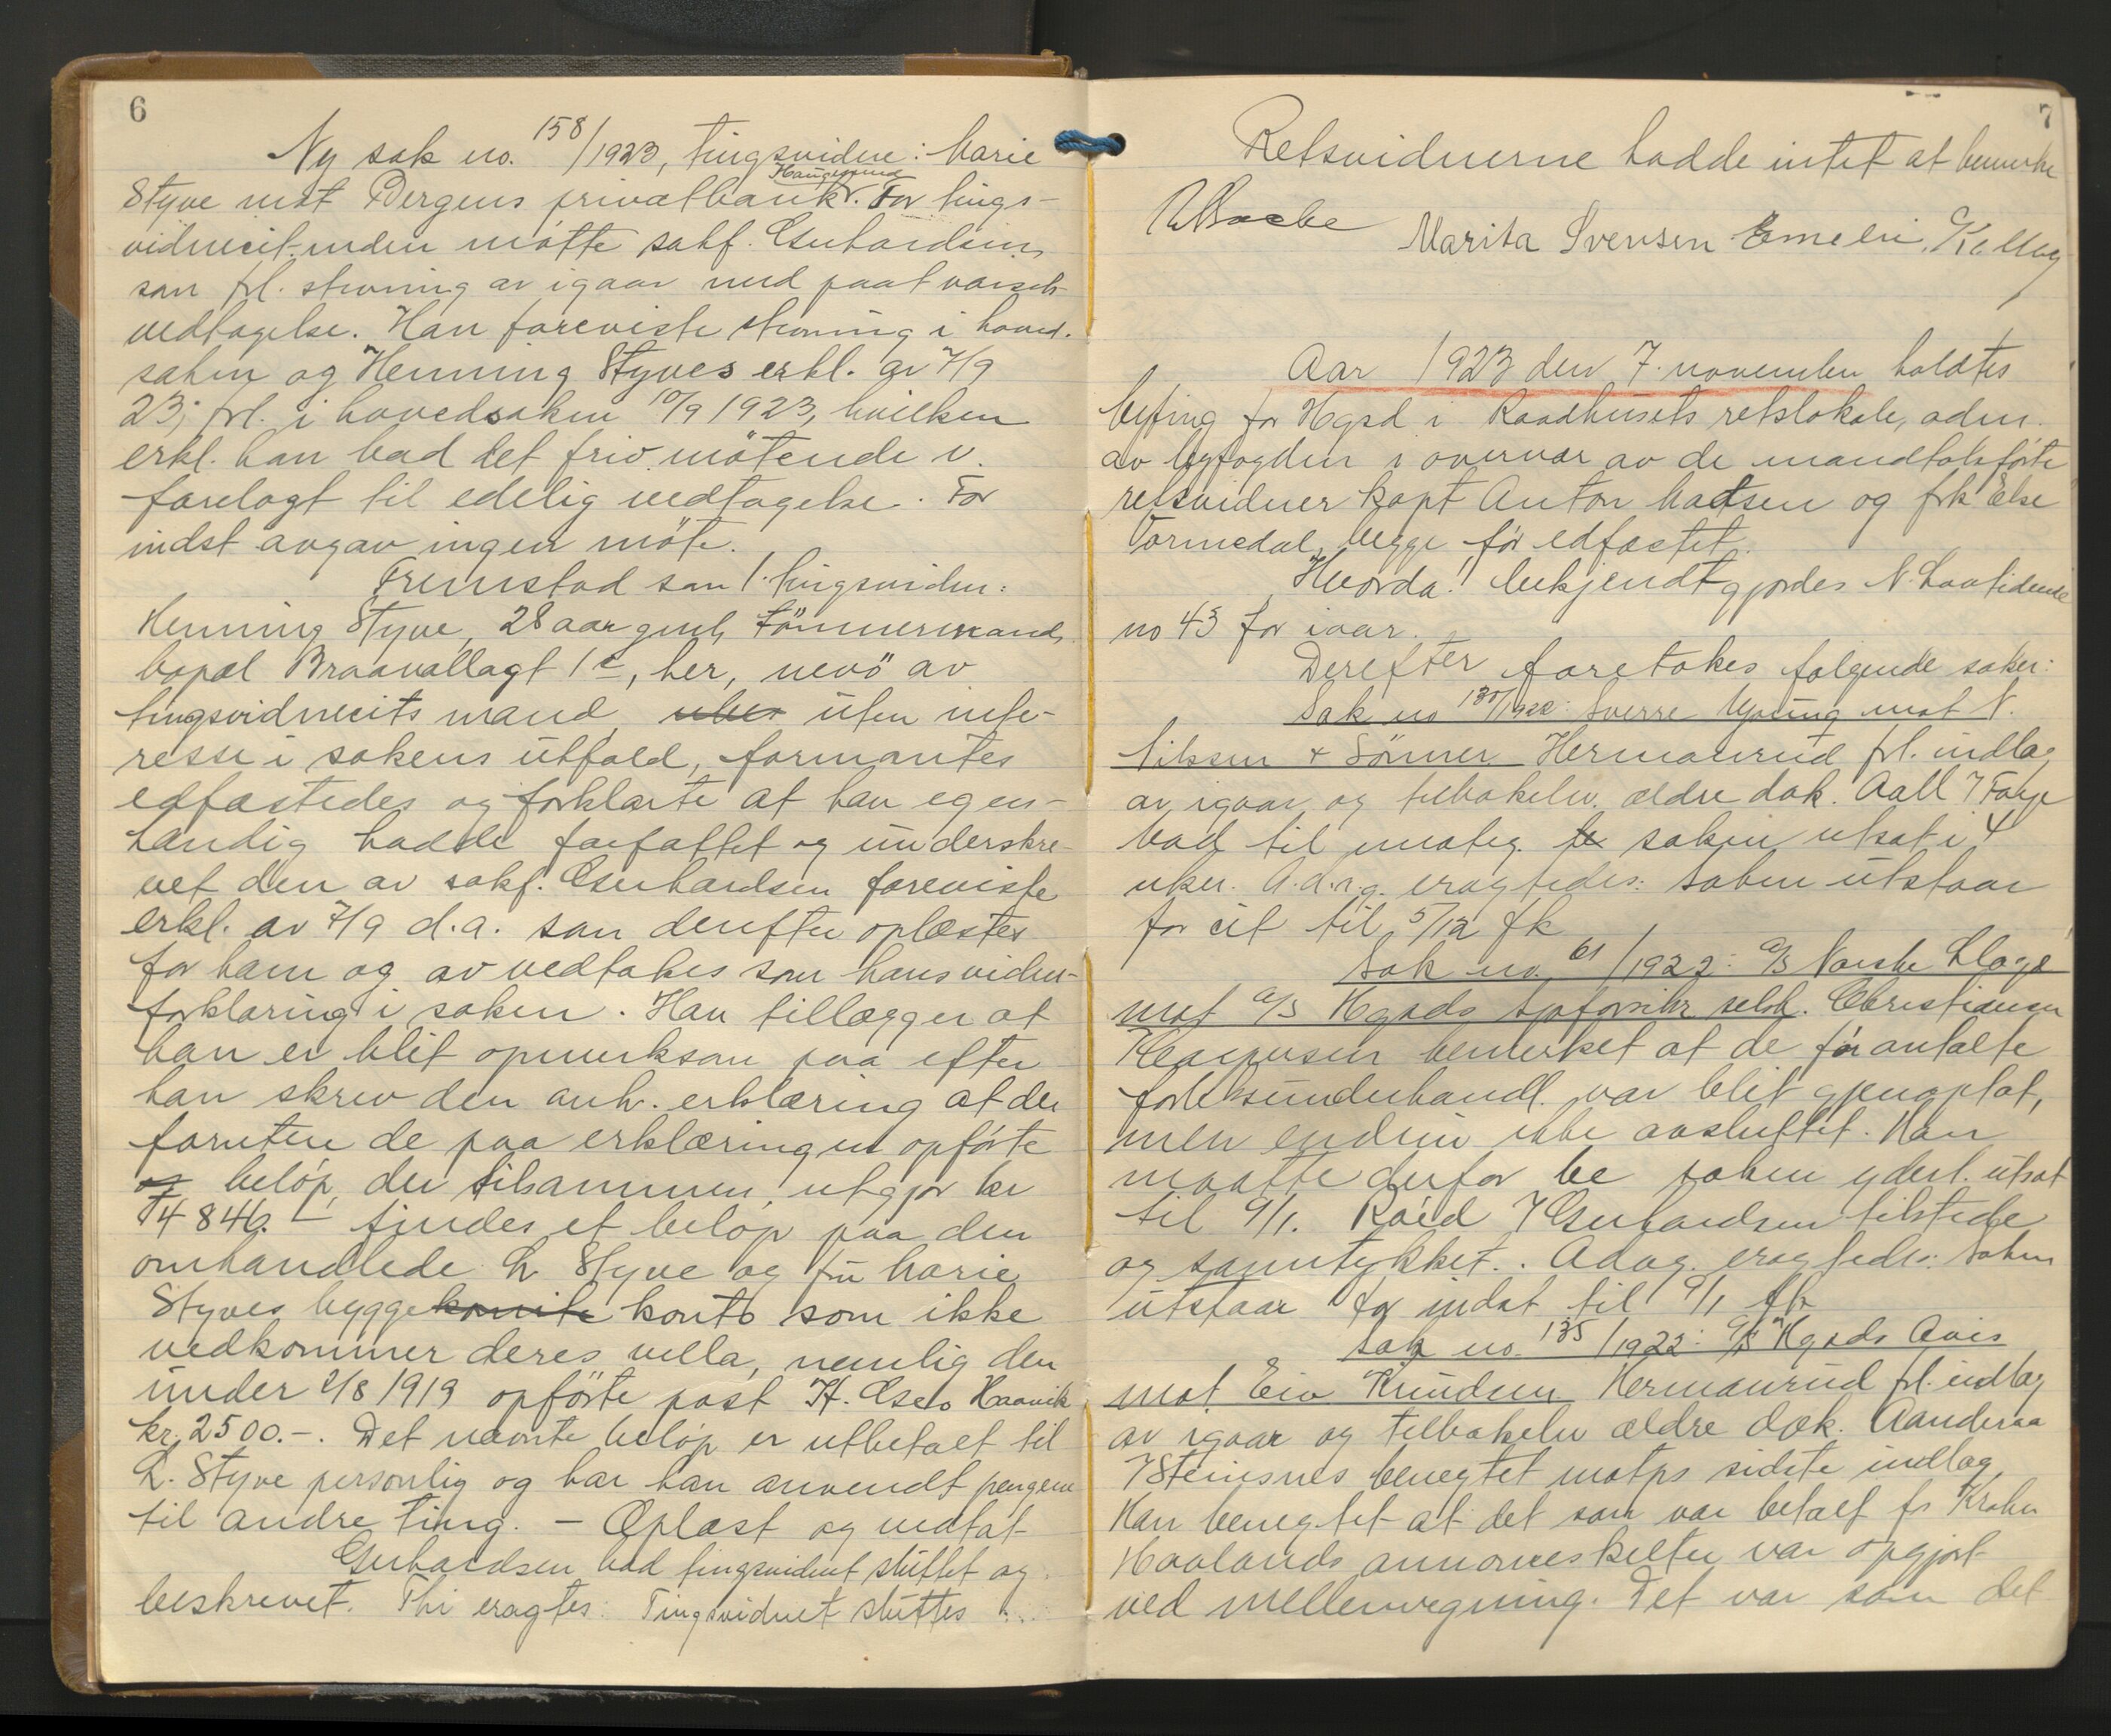 6
Ny sak no. 158/1923, tingsvidne: Marie
Styve mot Bergens privatbank, Haugesund. For tings-
vidnecit.inden møtte sakf. Gerhardsen,
som frl. stevning av igaar med paat varsels-
vedtagelse. Han foreviste stevning i hoved-
saken og Henning Styves erkl. av 7/9
23, frl. i hovedsaken 10/9 1923, hvilken
erkl. han bad det friv. møtende v.
forelagt til edelig vedtagelse. For
indst avgav ingen møte.
Fremstod som 1. tingsvidne:
Henning Styve, 28 aar gml, tømmermand,
bopæl Braavallagt 1c, her, nevø av
tingsvidnecits mand, uten inte-
resse i sakens utfald, formantes
edfæstedes og forklarte at han egen-
hændig hadde forfattet og underskre-
vet den av sakf. Gerhardsen foreviste
erkl. av 7/9 d.a. som derefter oplæstes
for ham og av vedtokes som hans vidne-
forklaring i saken. Han tillægger at
han er blit opmerksom paa efter
han skrev den anh. erklæring at der
foruten de paa erklæringen opførte
og beløp, der tilsammen utgjør kr
14846.- findes et beløp paa den
omhandlede L Styve og fru Marie
Styves byggekomite konto som ikke
vedkommer deres villa, nemlig den
under 2/8 1919 opførte post H. Eseb Haavik
kr. 2500.-. Det nævnte beløp er utbetalt til
L. Styve personlig og har han anvendt pengene
til andre ting. - Oplæst og vedtat
Gerhardsen bad tingsvidnet sluttet og
beskrevet. Thi eragtes: Tingsvidnet sluttes
7
Retsvidnerne hadde intet at bemerke
Marita Svensen Emelie
Aar 1923 den 7. november holdtes
byting for Hgsd i Raadhusets retslokale, adm.
av byfogden i overvær av de mandtalsførte
retsvidner kapt Anton Madsen og frk Else
Vormedal, begge før edfæstet.
Hvorda! bekjendtgjordes N. Lovtidende
no 43 for iaar.
Derefter foretokes følgende saker:
Sak no 130/1922: Sverre mot N.
Nilssen & Sønner Hermanrud frl. indlæg
av igaar og tilbakelev. ældre dok. Aall f Fage
bad til motég. saken utsat i 4
uker. A.d.r.g. eragtedes: Saken utstaar
for cit til 5/12 fk
Sak no. 61/1922: a/s Norske Lloyd
mot a/s Hgsds sjøforsikr selsk. Christiansen
f Rasmussen bemerket at de før antalte
forliksunderhandl. var blit gjenoptat,
men endnu ikke avsluttet. Han
maatte derfor be saken yderl. utsat
til 9/1. Røed f Gerhardsen tilstede
og samtykket. Adag. eragtedes: Saken
utstaar for indst til 9/1 fk
Sak no. 135/1922: a/s Hgsds Avis
mot Eiv Knudsen Hermanrud frl. indlæg
av igaar og tilbakelev ældre dok. Aanderaa
f Steinsnes benegtet motps sidste indlæg
Han benegtet at det som var betalt fr Krohn
Hovlands annonceskilter var opgjort
ved mellemregning. Det var som det